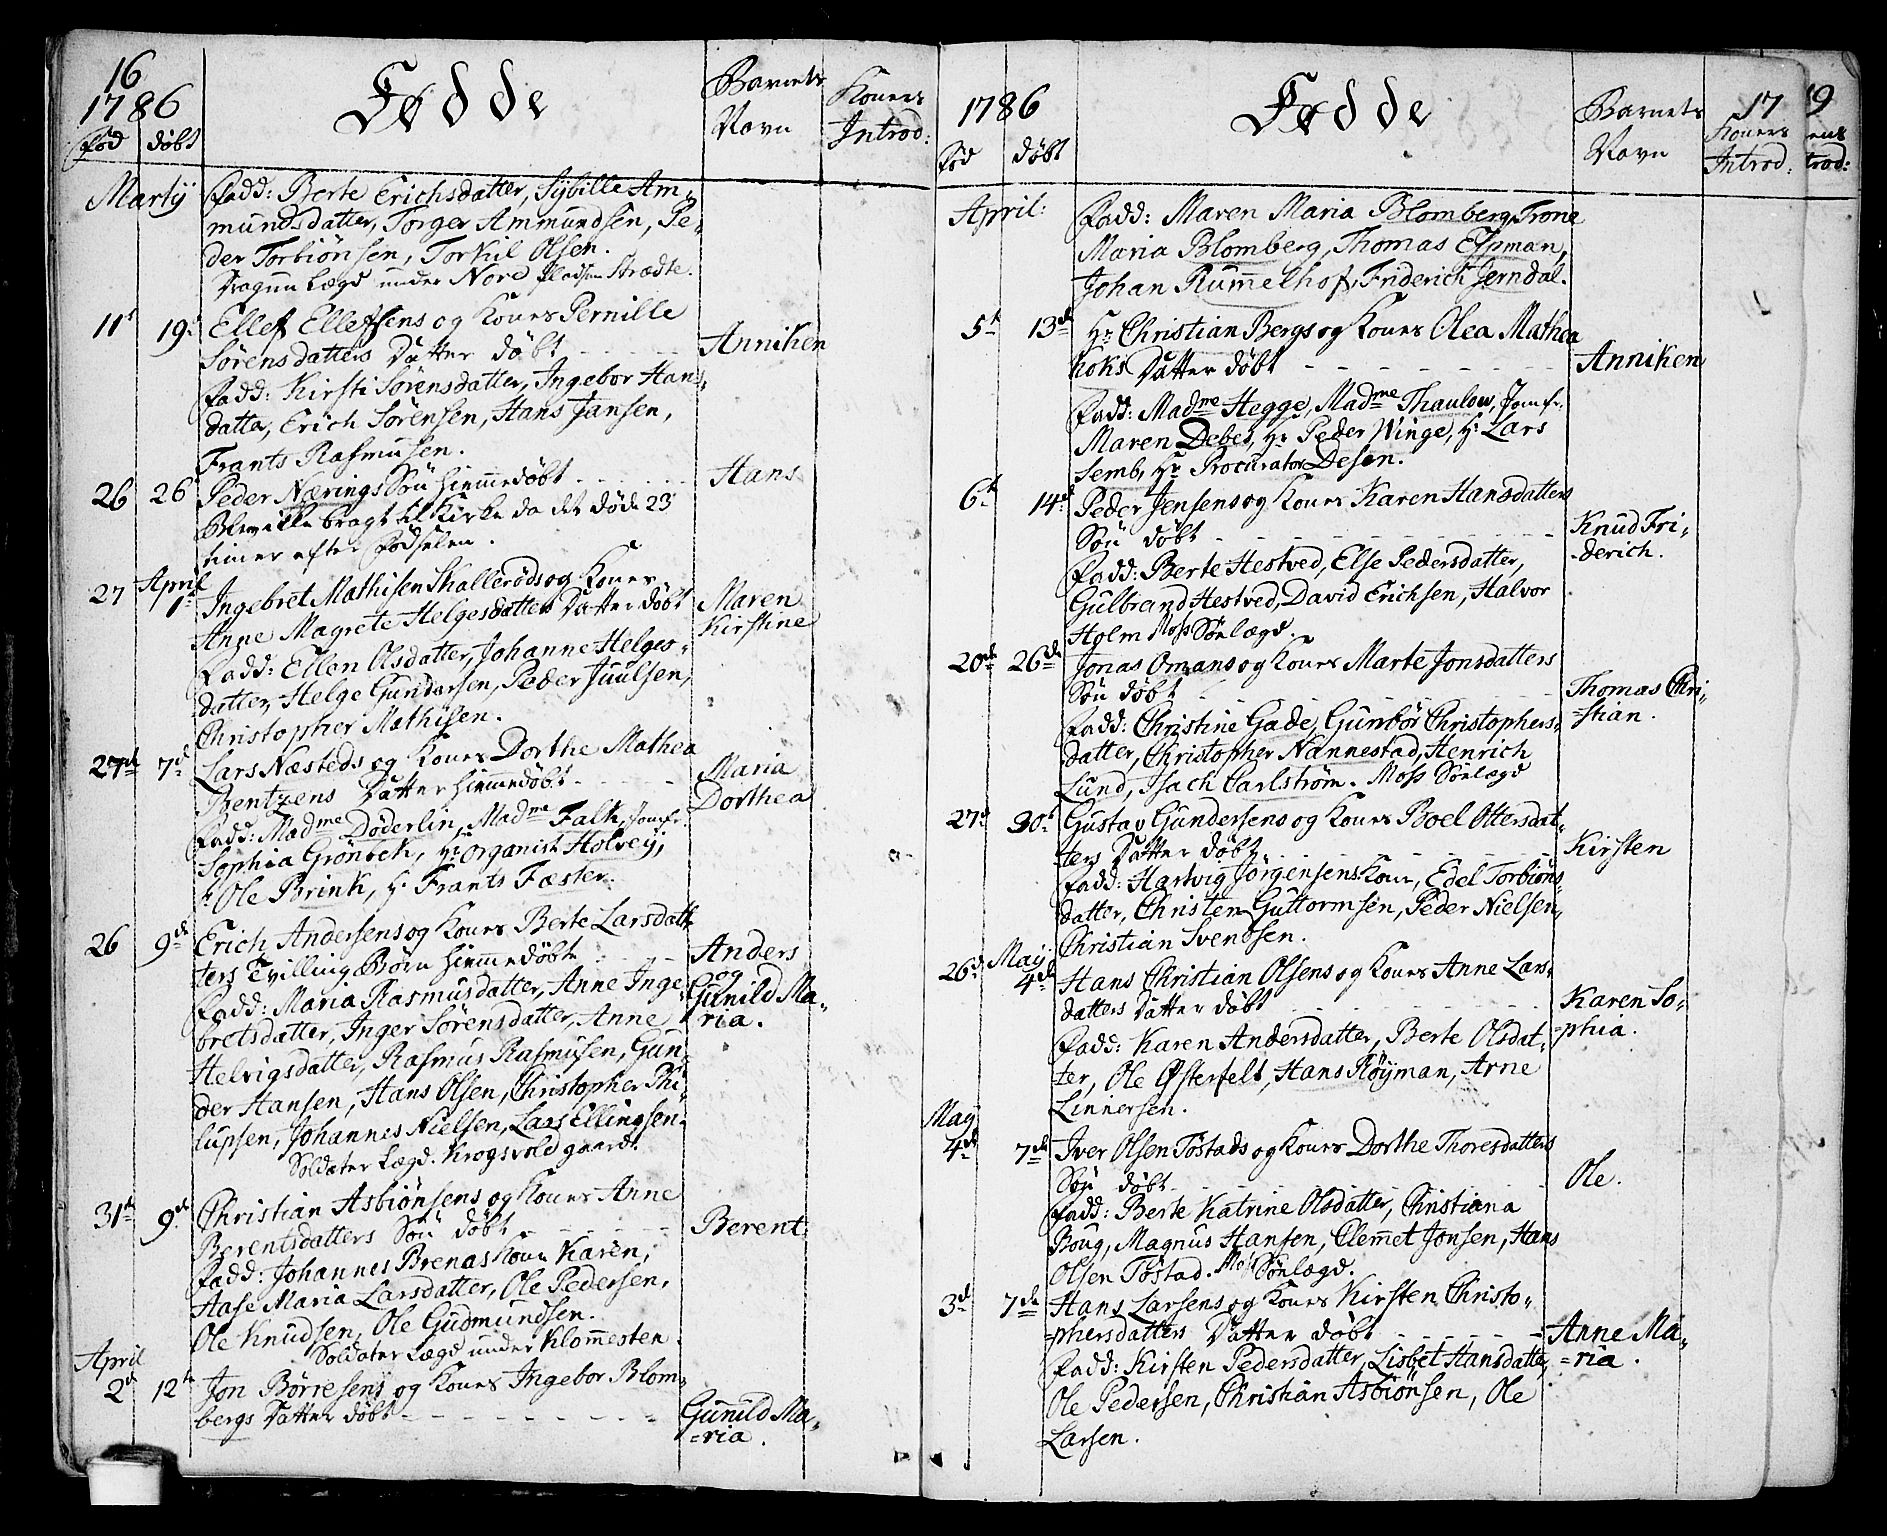 16
1786
Fød døbt
Fødde
Barnets
Navn
Koners
Introd:
Martij
Fadd: Berte Erichsdatter, Sybille Am-
mundsdatter, Torger Ammundsen, Pe-
der Torbiönsen, Torkil Olsen.
Dragun Lægd under Nord pladsen Strædte.
11t 19t Ellef Ellefsens og Kones Pernille
Sörensdatters Datter döbt - - - - Anniken
Fadd: Kirsti Sörensdatter, Ingebor Hans-
datter, Erich Sörensen, Hans Jansen,
Frants Rasmusen.
26 26 Peder Nærings Sön Hiemmedöbt - - - - Hans
Blev ikke bragt til Kirke da det döde 23
timer efter Fødselen.
27 April 1t Ingebret Mathisen Skallerøds og Kones
Anne Magrete Helgesdatter Datter döbt Maren
Kirstine
Fadd: Ellen Olsdatter, Johanne Helges-
datter, Helge Gundersen, Peder Juulsen,
Christopher Mathisen.
27de 7de Lars Næsteds og Kones Dorthe Mathea
Bentzens Datter Hiemmedöbt - - - Maria
Dorthea
Fadd: Madme Døderlin, Madme Falk, Jomfr:
Sophia Grönbek, Hr Organist Holvej,
Hr Ole Brink, Hr Frants Fæster.
26 9de Erich Andersens og Kones Berte Larsdatt-
ters Tvillinge Börn Hiemmedöbt - - Anders
og
Gunild Ma-
ria.
Fadd: Maria Rasmusdatter, Anne Inge-
bretsdatter, Inger Sörensdatter, Anne
Helvigsdatter, Rasmus Rasmusen, Gun-
der Hansen, Hans Olsen, Christopher Phi-
lupsen, Johannes Nielsen, Lars Ellingsen.
Soldater Lægd. Krogsvold gaard.
31te 9de Christian Asbiönsens og Kones Anne
Berentsdatters Sön döbt - - - - Berent.
Fadd: Johannes Brenas Kone Karen,
Aase Maria Larsdatter, Ole Pedersen,
Ole Knudsen, Ole Gudmundsen.
Soldater Lægd under Klommesten.
April
2d 12te Jon Börresens og Kones Ingebor Blom-
bergs Datter döbt - - - - - - - - Gunild Ma-
=ria.
1786
Fød døbt
Fødde
Barnets
Navn
17
Koners
Introd:
9
ens
trod:
April:
Fadd: Maren Maria Blomberg, Trone
Maria Blomberg, Thomas Elpman,
Johan Rummelhof, Friderich Jerndal.
5t 13de Hr Christian Bergs og Kones Olea Mathea
Koks Datter döbt - - - - - - - Anniken
Fadd: Madme Hegge, Madme Thaulow, Jomfr.
Maren Debes, Hr Peder Winge, Hr Lars
Semb, Hr Procurator Desen.
6t 14de Peder Jensens og Kones Karen Hansdatters
Sön döbt - - - - - - - - Knud Fri-
=derich.
Fadd: Berte Hestved, Else Pedersdatter,
Gulbrand Hestved, David Erichsen, Halvor
Holm Moss Sönlægd.
20de 26de Jonas Omans og Kones Marte Jonsdatters
Sön döbt - - - - - - - - Thomas Chri-
=stian.
Fadd: Christine Gade, Gunbör Christophers-
datter, Christopher Nannestad, Henrich
Lund, Isach Carlström. Moss Sönlægd
27d 30t Gustav Gundersens og Kones Boel Ottersdat-
ters Datter döbt - - - - - - - Kirsten
Fadd: Hartvig Jörgensens Kone, Edel Torbiöns-
datter, Christen Guttormsen, Peder Nielsen,
Christian Svendsen.
26d Maij 4de Hans Christian Olsens og Kones Anne Lars-
datters Datter döbt - - - - - - Karen So-
=phia.
Fadd: Karen Andersdatter, Berte Olsdat-
ter, Ole Østerfelt, Hans Röyman, Arne
Linnersen.
Maij
4de 7de Iver Olsen Töstads og Kones Dorthe Thoresdatters
Sön döbt - - - - - - - - Ole.
Fadd: Berte Katrine Olsdatter, Christiana
Boug, Magnus Hansen, Clemmet Jonsen, Hans
Olsen Töstad. Moss Sönlægd.
3d 7de Hans Larsens og Kones Kirsten Christo-
=phersdatters Datter döbt - - - - - Anne Ma-
=ria.
Fadd: Kirsten Pedersdatter, Lisbet Hansdatter,
Ole Pedersen, Christian Asbiönsen, Ole
Larsen.